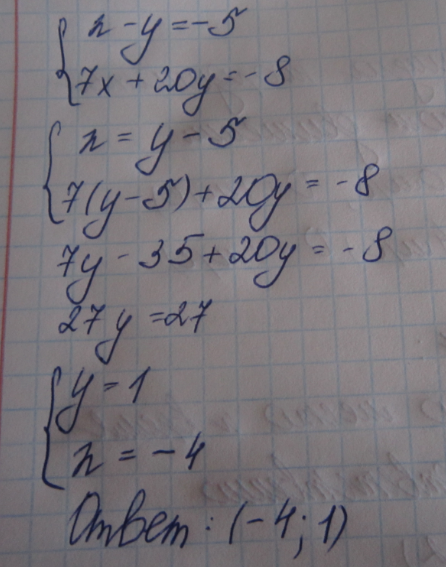 x - y = -5
7x + 20y = -8
x = y - 5
7(y - 5) + 20y = -8
7y - 35 + 20y = -8
27y = 27
y = 1
x = -4
Ответ: (-4; 1)